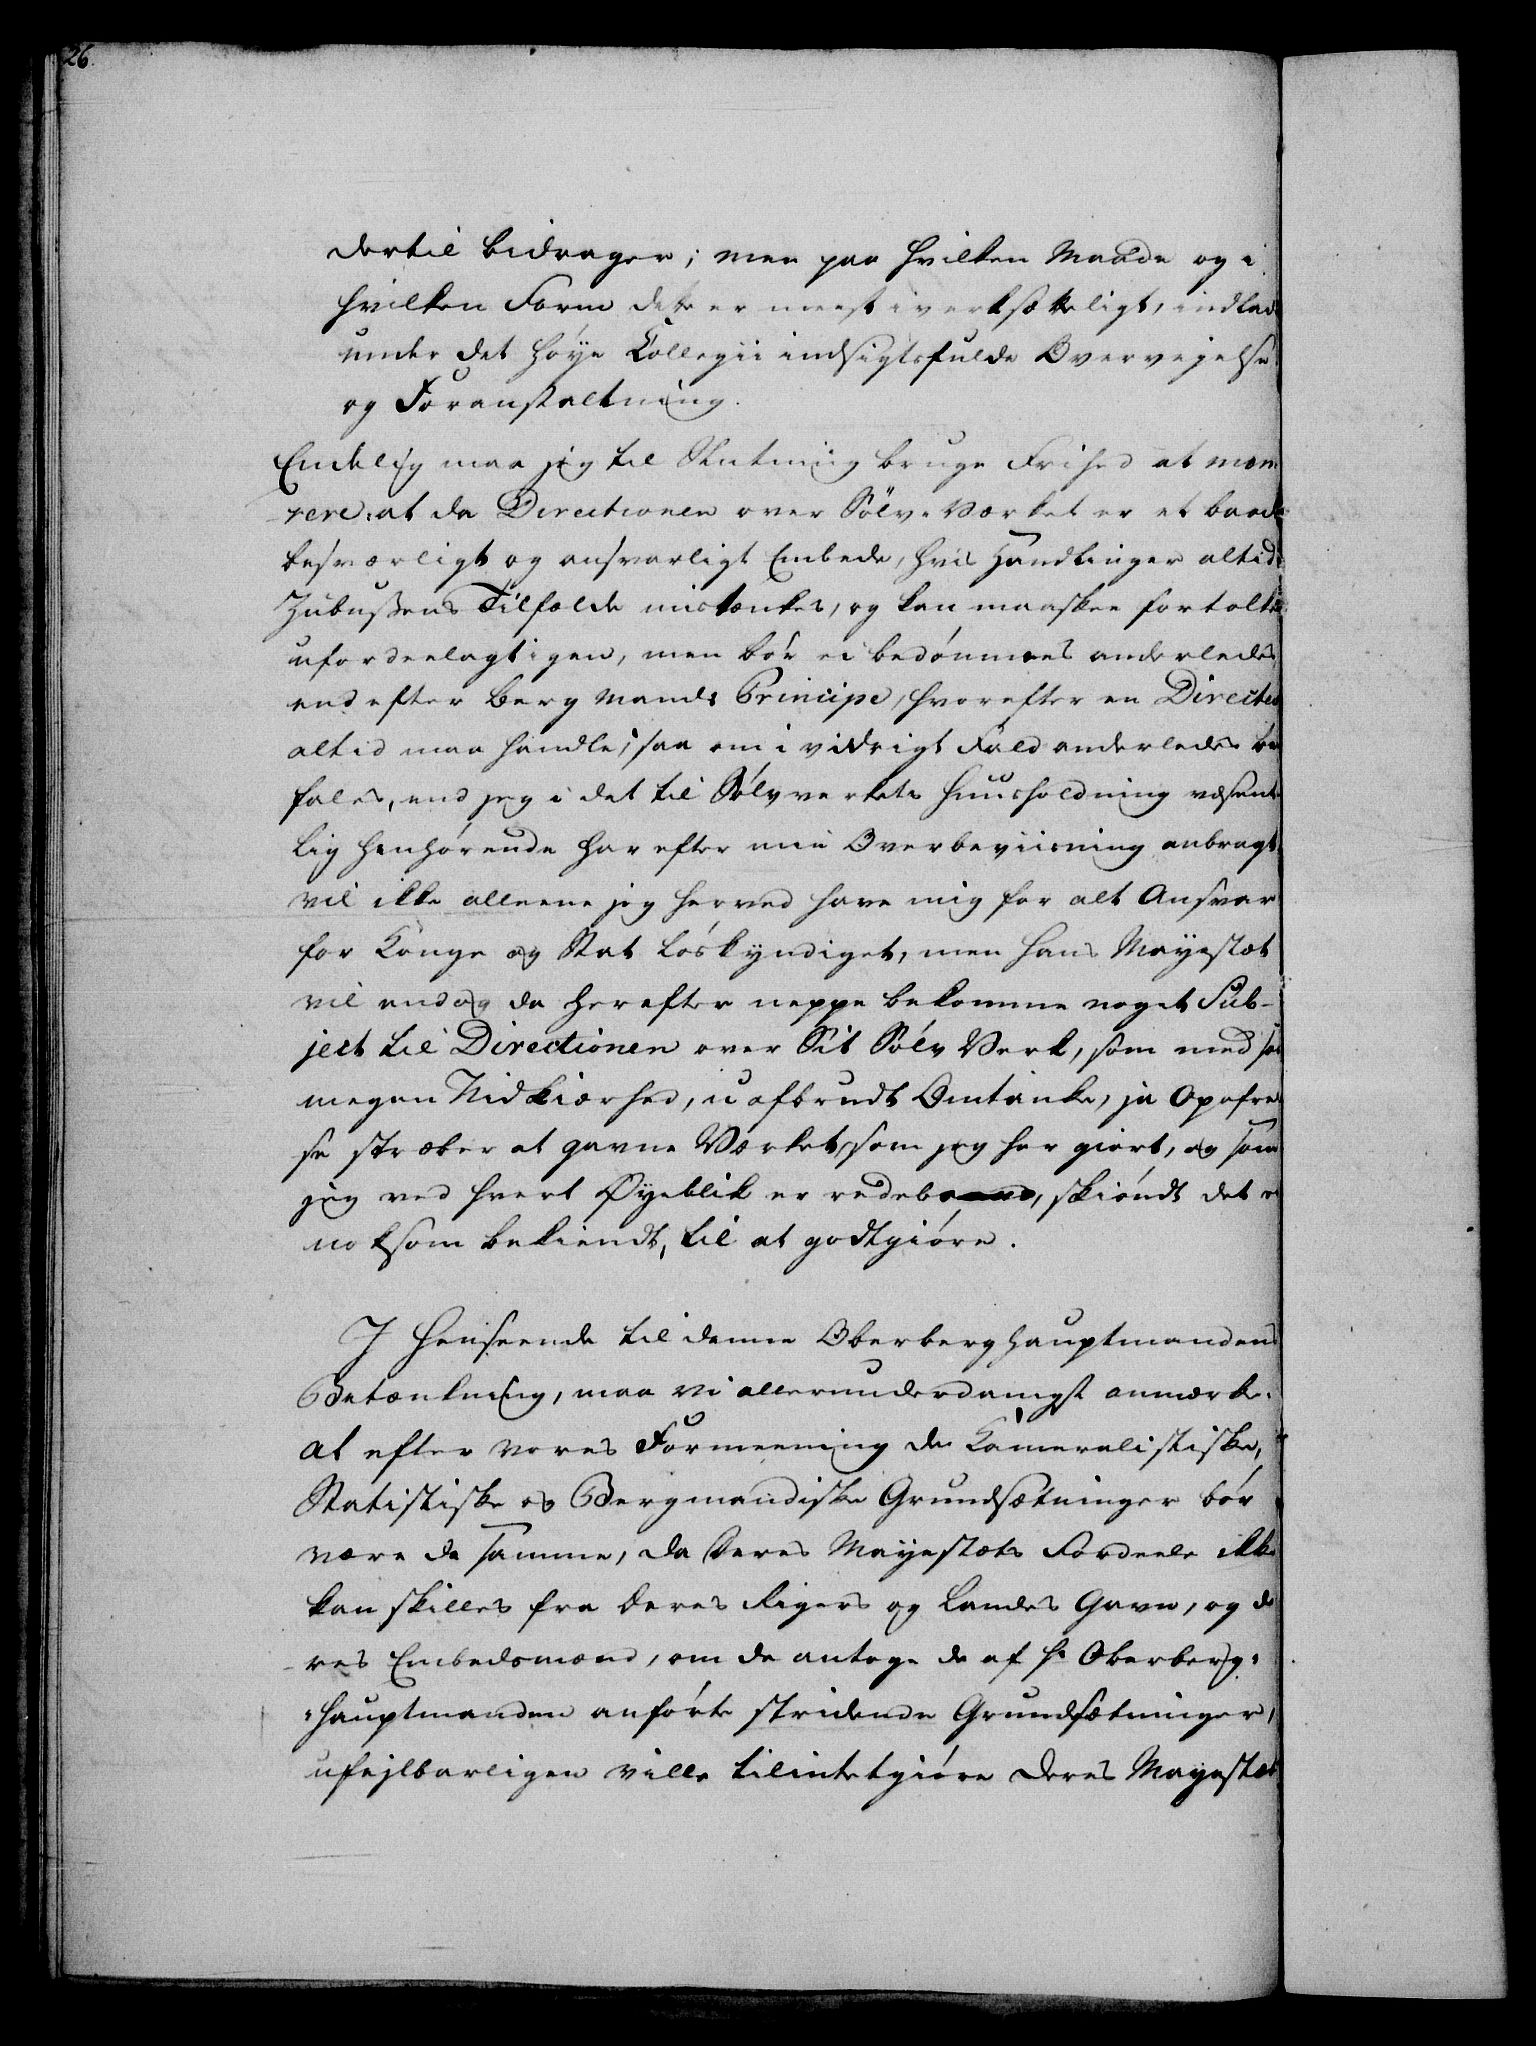 26.
dertil bidrager; men paa hvilken Maade og i
hvilken Form dette er meest iverksætteligt, indlades
under det høye Collegii indsigtsfulde Overvejelse
og Foranstaltning.
Endelig maa jeg til Slutning bruge Frihed at moni
rere: at da Directionen over Sølv-Værket er et baade
besværligt og ansvarligt Embede, hvis Handlinger altid i
Zubussens Tilfælde mistænkes, og kan maaskee fortolkes
ufordeelagtigen, men bør ei bedømmes anderledes
end efter Berg Mands Principe, hvorefter en Directeur
altid maa handle; saa om i vidrigt Fald anderledes be
fales, end jeg i det til Sølvverkets Huusholdning væsent
lig henhørende har efter min Overbeviisning anbragt,
vil ikke alleene jeg herved have mig for alt Ansvar
for Konge og Stat løskyndiget, men Hans Mayestæt
vil endog da herefter neppe bekomme noget Sub-
ject til Directionen over Sit Sølv Verk, som med saa
megen Nidkiærhed, uafbrudt Omtanke, ja Opofrel
se stræber at gavne Værket, som jeg har giort, og som
jeg ved hvert Øyeblik er redebond, skiøndt det er
noksom bekiendt, til at godtgiøre.
I Henseende til denne Oberberghauptmandens
Betænkning, maa vi allerunderdanigst anmærke:
at efter vores Formeening de Kameralistiske,
Statistiske og Bergmandiske Grundsætninger bør
være de samme, da Deres Mayestæts Fordeele ikke
kan skilles fra Deres Rigers og Landes Gavn, og De
res Embedsmænd, om de antoge de af Hr Oberberg-
hauptmanden anførte stridende Grundsætninger,
ufejlbarligen ville tilintetgiøre Deres Mayestæts